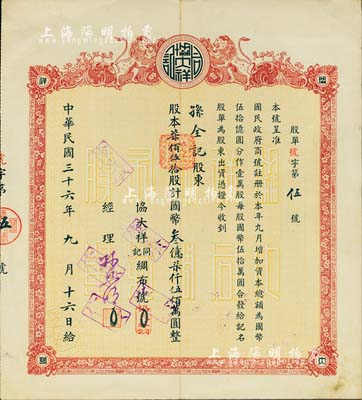 上海陽明拍賣
協大祥
股單號字第伍號
本號呈准
國民政府商號註冊於本年九月增加資本總額為國幣
伍拾億圓分作壹萬股每股國幣伍拾萬圓合發給記名
股單為股東出資憑證今收到
孫全記股東
股本柒佰伍拾股計國幣叁億柒仟伍佰萬圓整
協大祥同記綢布號
經理
中華民國三十六年九月十六日給
字第
五
號
上海陽明拍賣